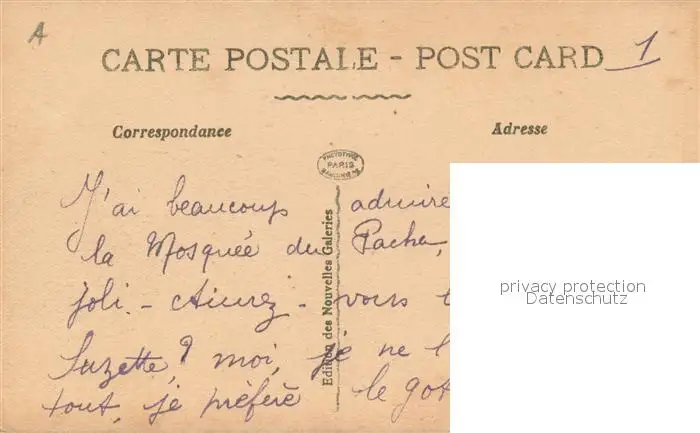 A
1
CARTE POSTALE - POST CARD
Correspondance
Adresse
PHOTOTYPIE
PARIS
Edition des Nouvelles Galeries
J'ai beaucoup admiré
la Mosquée du Pacha,
joli - Aimez - vous
Suzette ? moi, je ne l
tout, je préfère le got
privacy protection
Datenschutz